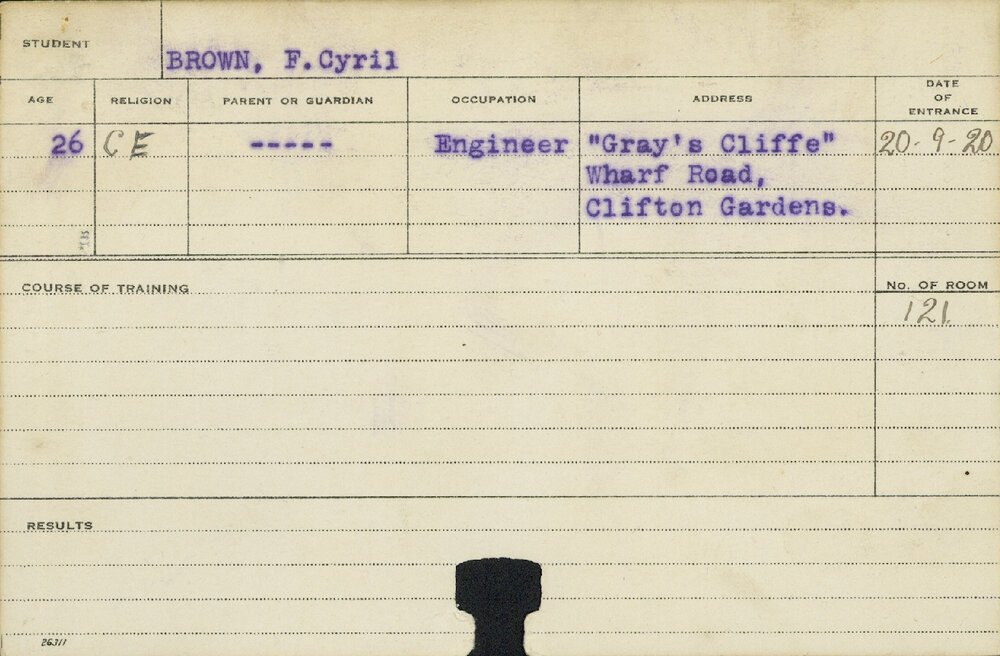 STUDENT
BROWN, F.Cyril
AGE RELIGION PARENT OR GUARDIAN OCCUPATION ADDRESS DATE OF ENTRANCE
26 CE ----- Engineer "Gray's Cliffe" 20-9-20
Wharf Road,
Clifton Gardens.
COURSE OF TRAINING No. OF ROOM
121.
RESULTS
26311